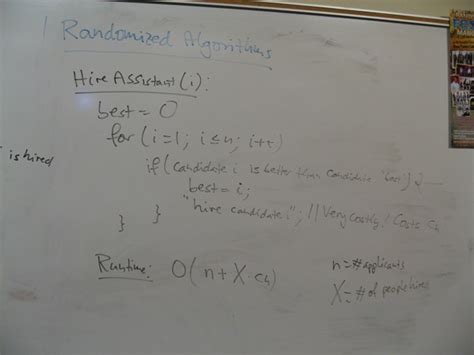 Randomized Algorithms
Hire Assistant (i):
best = 0
for (i=1; i≤n; i++)
is hired
if (candidate i is better than candidate "best") {
best = i;
"hire candidate i"; // Very costly! Costs Ch
}
}
Runtime: O(n + X·ch)
n = # applicants
X = # of people hired